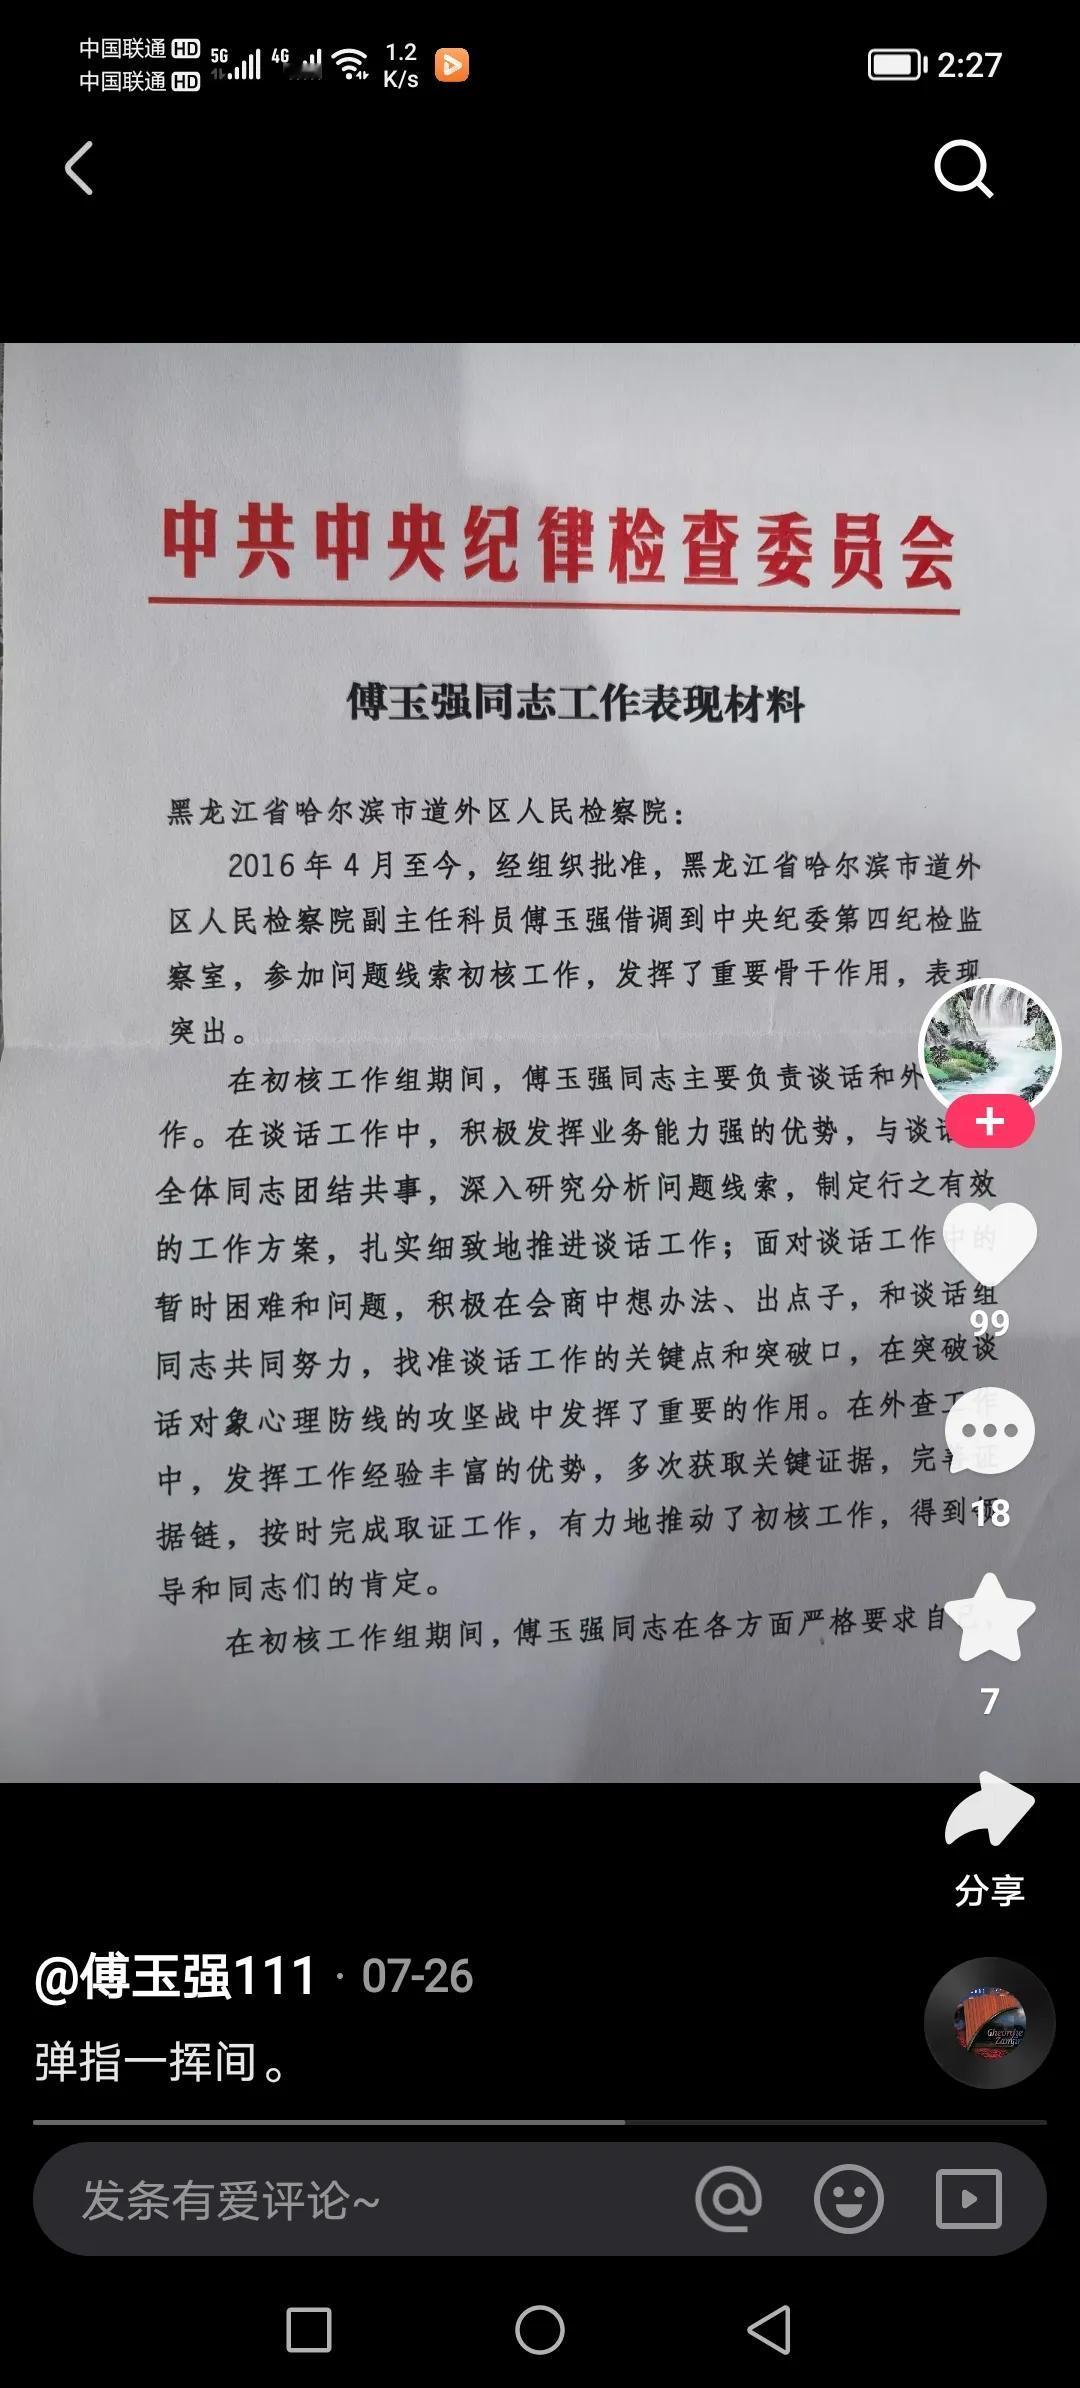 中国联通 HD 5G 4G 1.2 K/s 2:27
中国联通 HD
中共中央纪律检查委员会
傅玉强同志工作表现材料
黑龙江省哈尔滨市道外区人民检察院：
2016年4月至今，经组织批准，黑龙江省哈尔滨市道外
区人民检察院副主任科员傅玉强借调到中央纪委第四纪检监
察室，参加问题线索初核工作，发挥了重要骨干作用，表现
突出。
在初核工作组期间，傅玉强同志主要负责谈话和外
作。在谈话工作中，积极发挥业务能力强的优势，与谈话
全体同志团结共事，深入研究分析问题线索，制定行之有效
的工作方案，扎实细致地推进谈话工作；面对谈话工作中的
暂时困难和问题，积极在会商中想办法、出点子，和谈话组
同志共同努力，找准谈话工作的关键点和突破口，在突破谈
话对象心理防线的攻坚战中发挥了重要的作用。在外查工作
中，发挥工作经验丰富的优势，多次获取关键证据，完善证
据链，按时完成取证工作，有力地推动了初核工作，得到领
导和同志们的肯定。
在初核工作组期间，傅玉强同志在各方面严格要求自己，
99
18
7
分享
@傅玉强111 · 07-26
弹指一挥间。
Gheorghe
Zamfir
发条有爱评论~